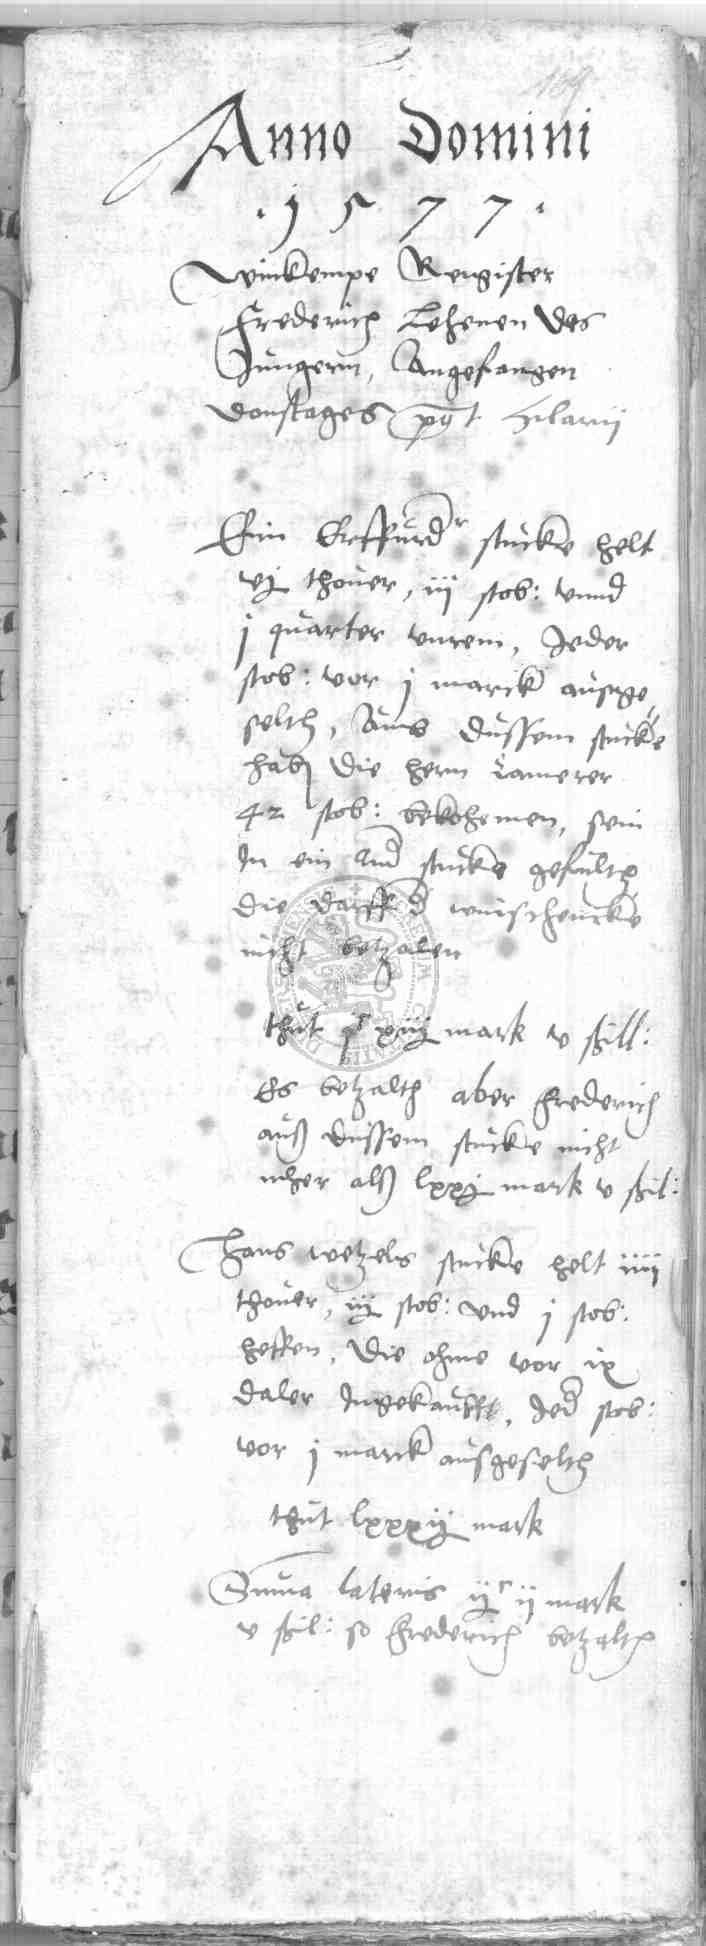 Anno Domini
1577
Winkempe Rengister
Frederich Lehenen des
Jungern, Angefangen
donstages post Hilarij
Ein Erffurder stucke helt
vj thover, iij stob: vnnd
j quarter vnrein, Jeder
stob: vor j marck ausge,
selth, Aus dussem stucke
hab die hern Camerer
42 stob: bekohemen, sein
In ein And stucke gefulth
die darff d winschencke
nicht betzalen
thut mark v ßill:
Es betzalth aber Frederich
auß dussem stucke nicht
mher alß lxxj mark v ßil:
Hans wetzels stucke helt iiij
thover, iij stob: vnd j stob:
heffen, Die ohme vor ix
daler Ingekaufft, Jed stob:
vor j marck ausgeselth
thut lxxxij mark
Summa lateris ijc ij mark
v ßil: so Frederich betzalth